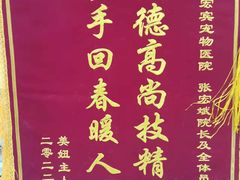 宏宾宠物医院 张宏斌院长及全体员
德高尚技精
手回春暖人
美妞主人
二零二二